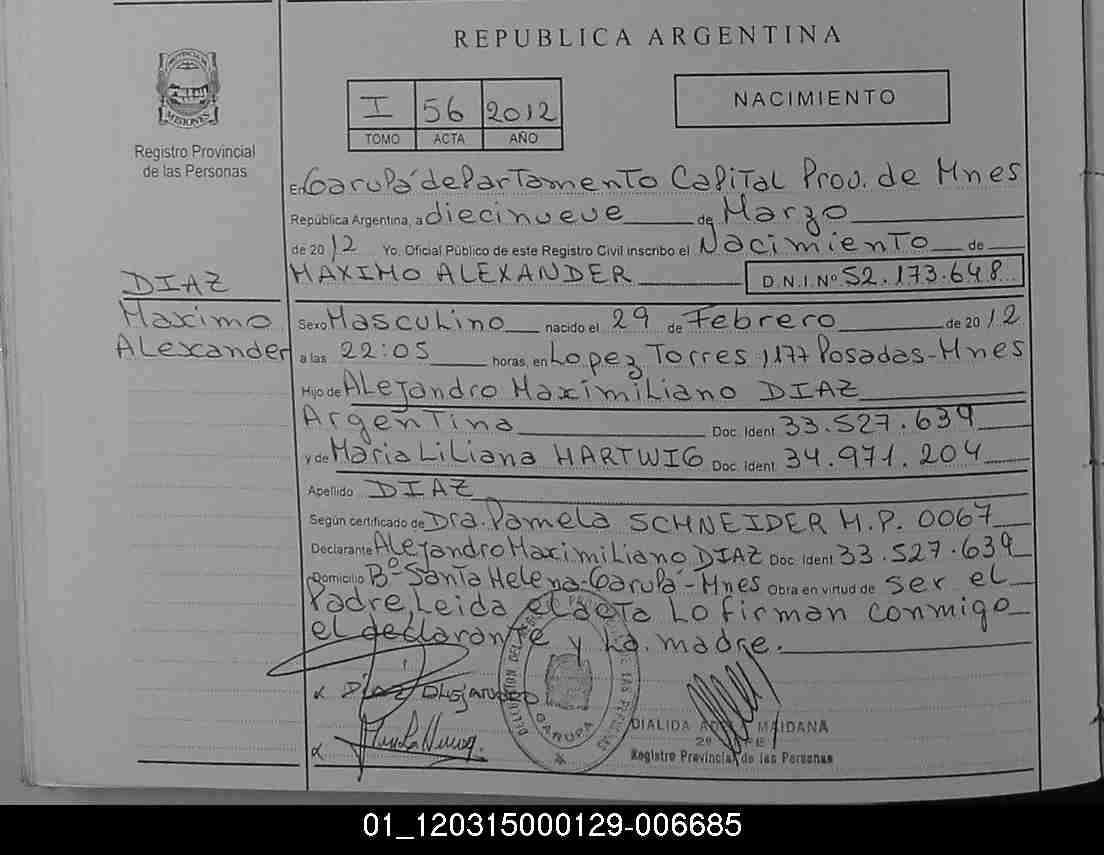 REPUBLICA ARGENTINA
PROVINCIA DE
MISIONES
Registro Provincial
de las Personas
I 56 2012
TOMO ACTA AÑO
NACIMIENTO
En Garupá departamento Capital Prov. de Mnes
República Argentina, a diecinueve de Marzo
de 2012 Yo, Oficial Público de este Registro Civil inscribo el Nacimiento de
MAXIMO ALEXANDER D.N.I.Nº 52.173.648
DIAZ
Maximo
Alexander
Sexo Masculino nacido el 29 de Febrero de 2012
a las 22:05 horas, en Lopez Torres 1177 Posadas-Mnes
Hijo de Alejandro Maximiliano DIAZ
Argentina Doc. Ident 33.527.639
y de Maria Liliana HARTWIG Doc. Ident 34.971.204
Apellido DIAZ
Según certificado de Dra. Pamela SCHNEIDER M.P. 0067
Declarante Alejandro Maximiliano DIAZ Doc. Ident 33.527.639
Domicilio Bº Santa Helena-Garupá-Mnes Obra en virtud de ser el
Padre, Leida el acta lo firman conmigo
el declarante y la madre.
Diaz Alejandro
GARUPA
DIALIDA MAIDANA
Registro Provincial de las Personas
01_120315000129-006685